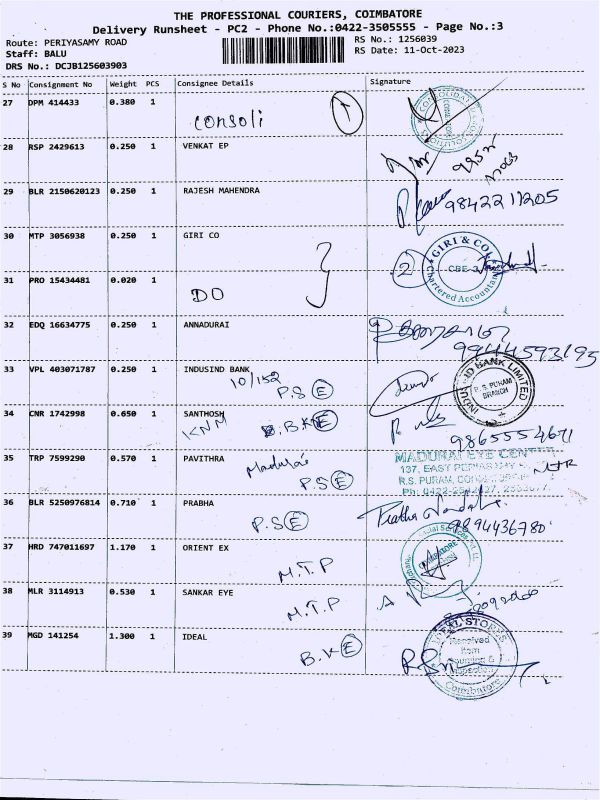 THE PROFESSIONAL COURIERS, COIMBATORE
Delivery Runsheet - PC2 - Phone No.:0422-3505555 - Page No.:3
Route: PERIYASAMY ROAD
RS No.: 1256039
Staff: BALU
RS Date: 11-Oct-2023
DRS No.: DCJB125603903
S No Consignment No Weight PCS Consignee Details Signature
27 DPM 414433 0.380 1
consoli 1
28 RSP 2429613 0.250 1 VENKAT EP
29 BLR 2150620123 0.250 1 RAJESH MAHENDRA
9842211205
30 MTP 3056938 0.250 1 GIRI CO
2 GIRI & CO. CBE-2 Chartered Accountants
31 PRO 15434481 0.020 1
DO
32 EDQ 16634775 0.250 1 ANNADURAI
9944593195
33 VPL 403071787 0.250 1 INDUSIND BANK
10/152
P.S E
INDUSIND BANK LIMITED R. S. PURAM BRANCH
34 CNR 1742998 0.650 1 SANTHOSH
KNM B.K E
9865554671
35 TRP 7599290 0.570 1 PAVITHRA
Madurai
P.S E
MADURAI EYE CENTRE
137, EAST PERIASAMY
R.S. PURAM,
Ph: 0422-
36 BLR 5250976814 0.710 1 PRABHA
P.S E
9894436780
37 HRD 747011697 1.170 1 ORIENT EX
M.T.P
COIMBATORE
38 MLR 3114913 0.530 1 SANKAR EYE
M.T.P
39 MGD 141254 1.300 1 IDEAL
B.K E
IDEAL STORES Received Item Coimbatore